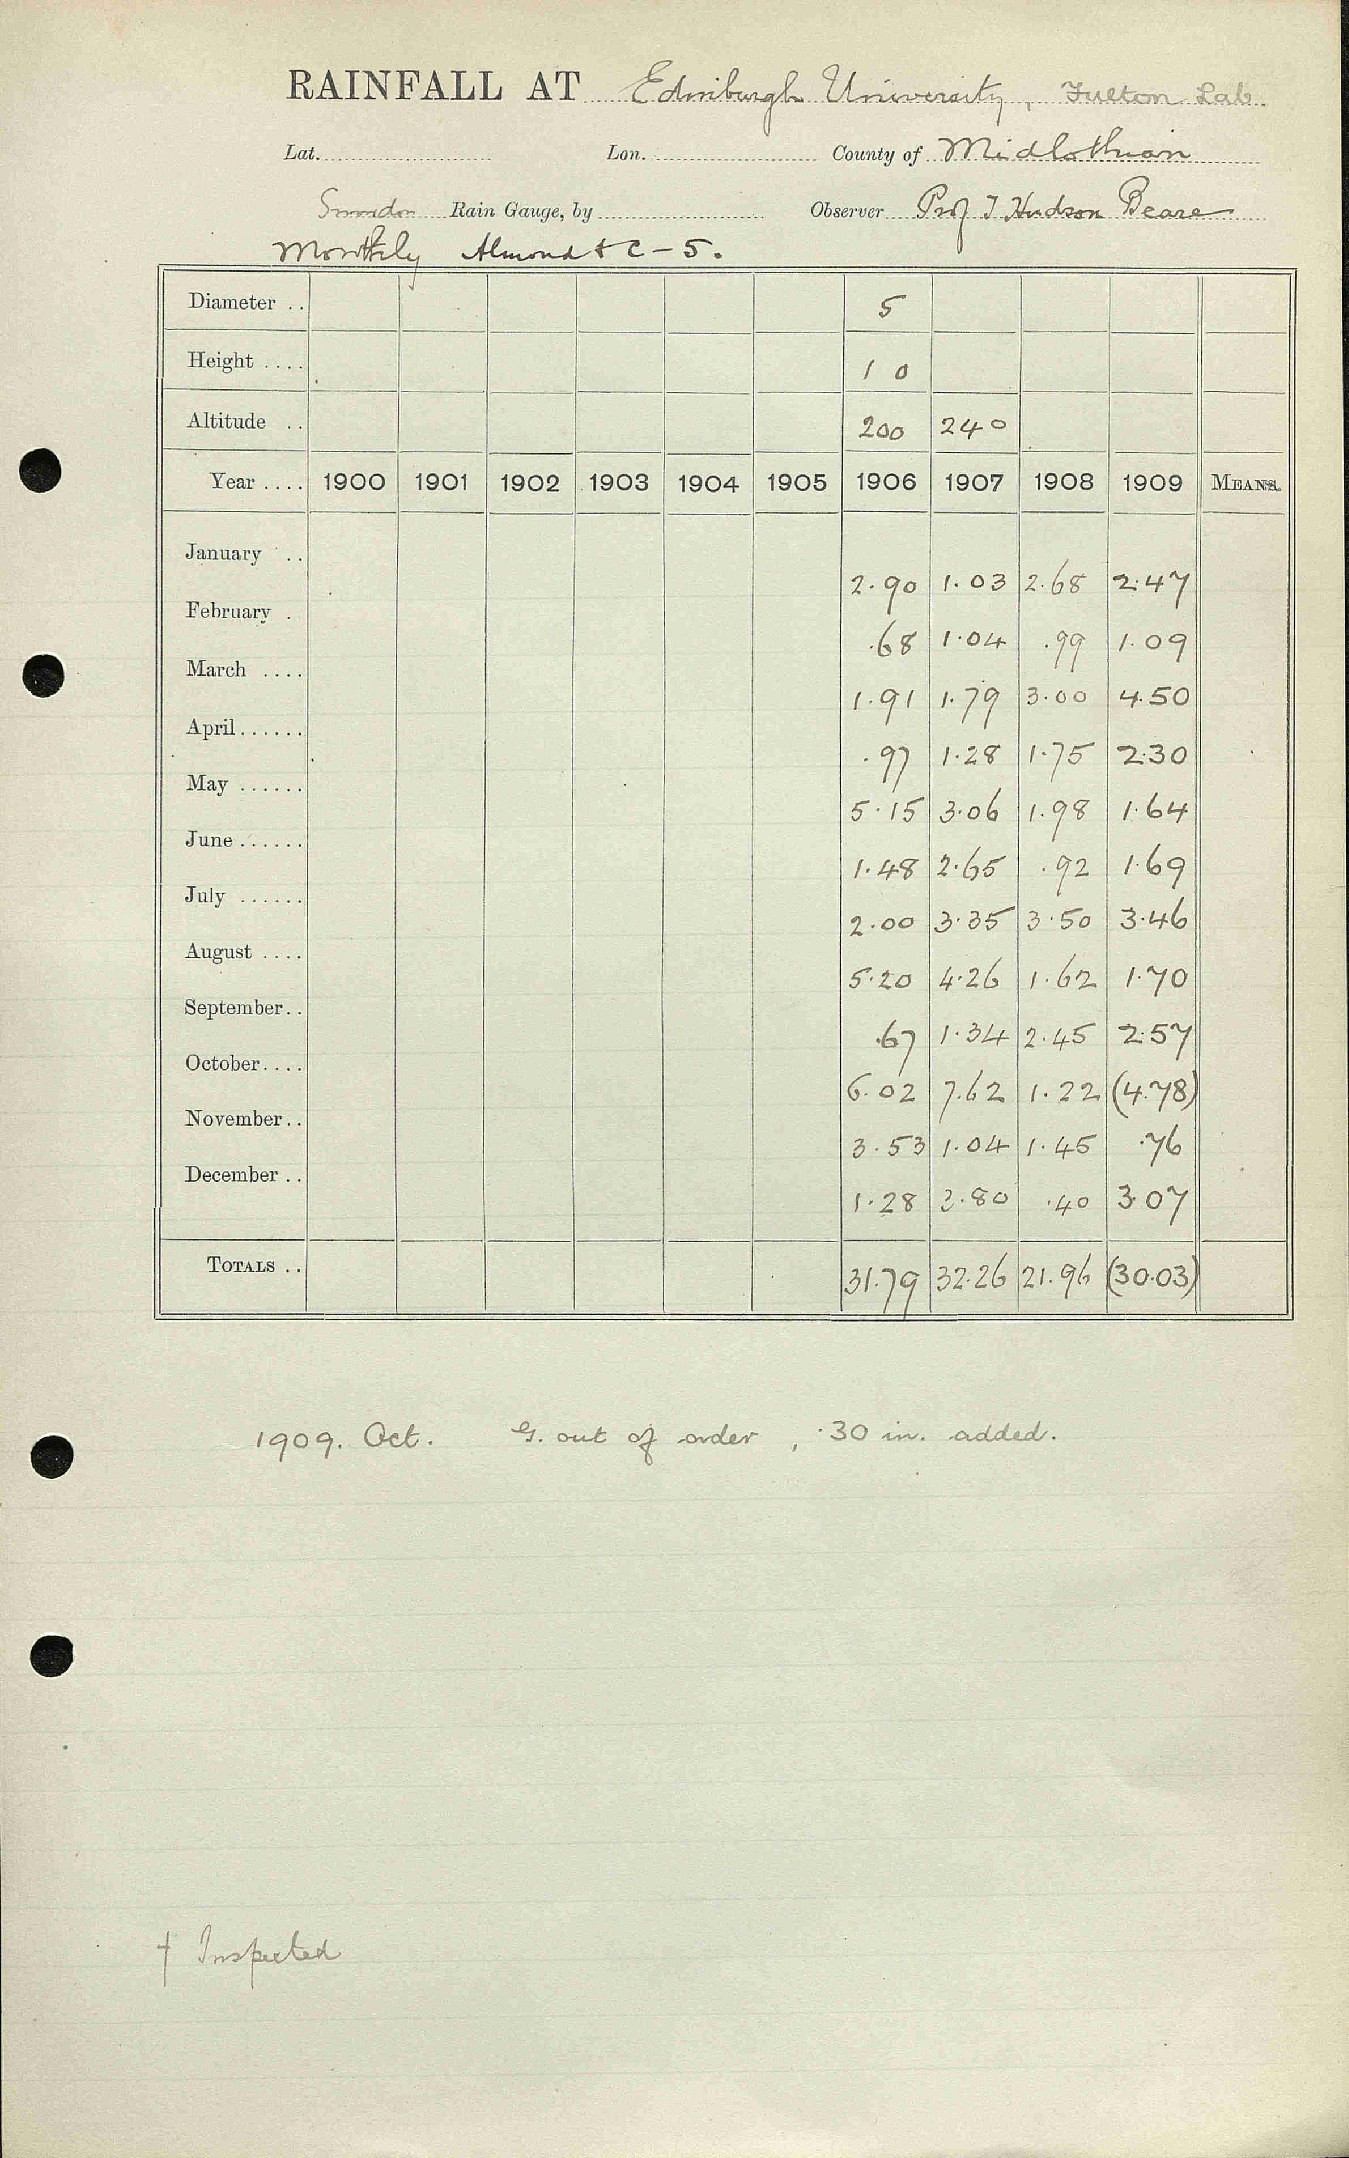 RAINFALL AT Edinburgh University, Fulton Lab.
Lat. Lon. County of Midlothian
Snowdon Rain Gauge, by Observer Prof T Hudson Beare
Monthly Almond & C - 5.
Diameter .. 5
Height .... 1 0
Altitude .. 200 240
Year .... 1900 1901 1902 1903 1904 1905 1906 1907 1908 1909 MEANS.
January .. 2.90 1.03 2.68 2.47
February . .68 1.04 .99 1.09
March .... 1.91 1.79 3.00 4.50
April...... .97 1.28 1.75 2.30
May ...... 5.15 3.06 1.98 1.64
June...... 1.48 2.65 .92 1.69
July ...... 2.00 3.35 3.50 3.46
August .... 5.20 4.26 1.62 1.70
September.. .67 1.34 2.45 2.57
October.... 6.02 7.62 1.22 (4.78)
November.. 3.53 1.04 1.45 .76
December .. 1.28 3.80 .40 3.07
TOTALS .. 31.79 32.26 21.96 (30.03)
1909. Oct. G. out of order, .30 in. added.
† Inspected